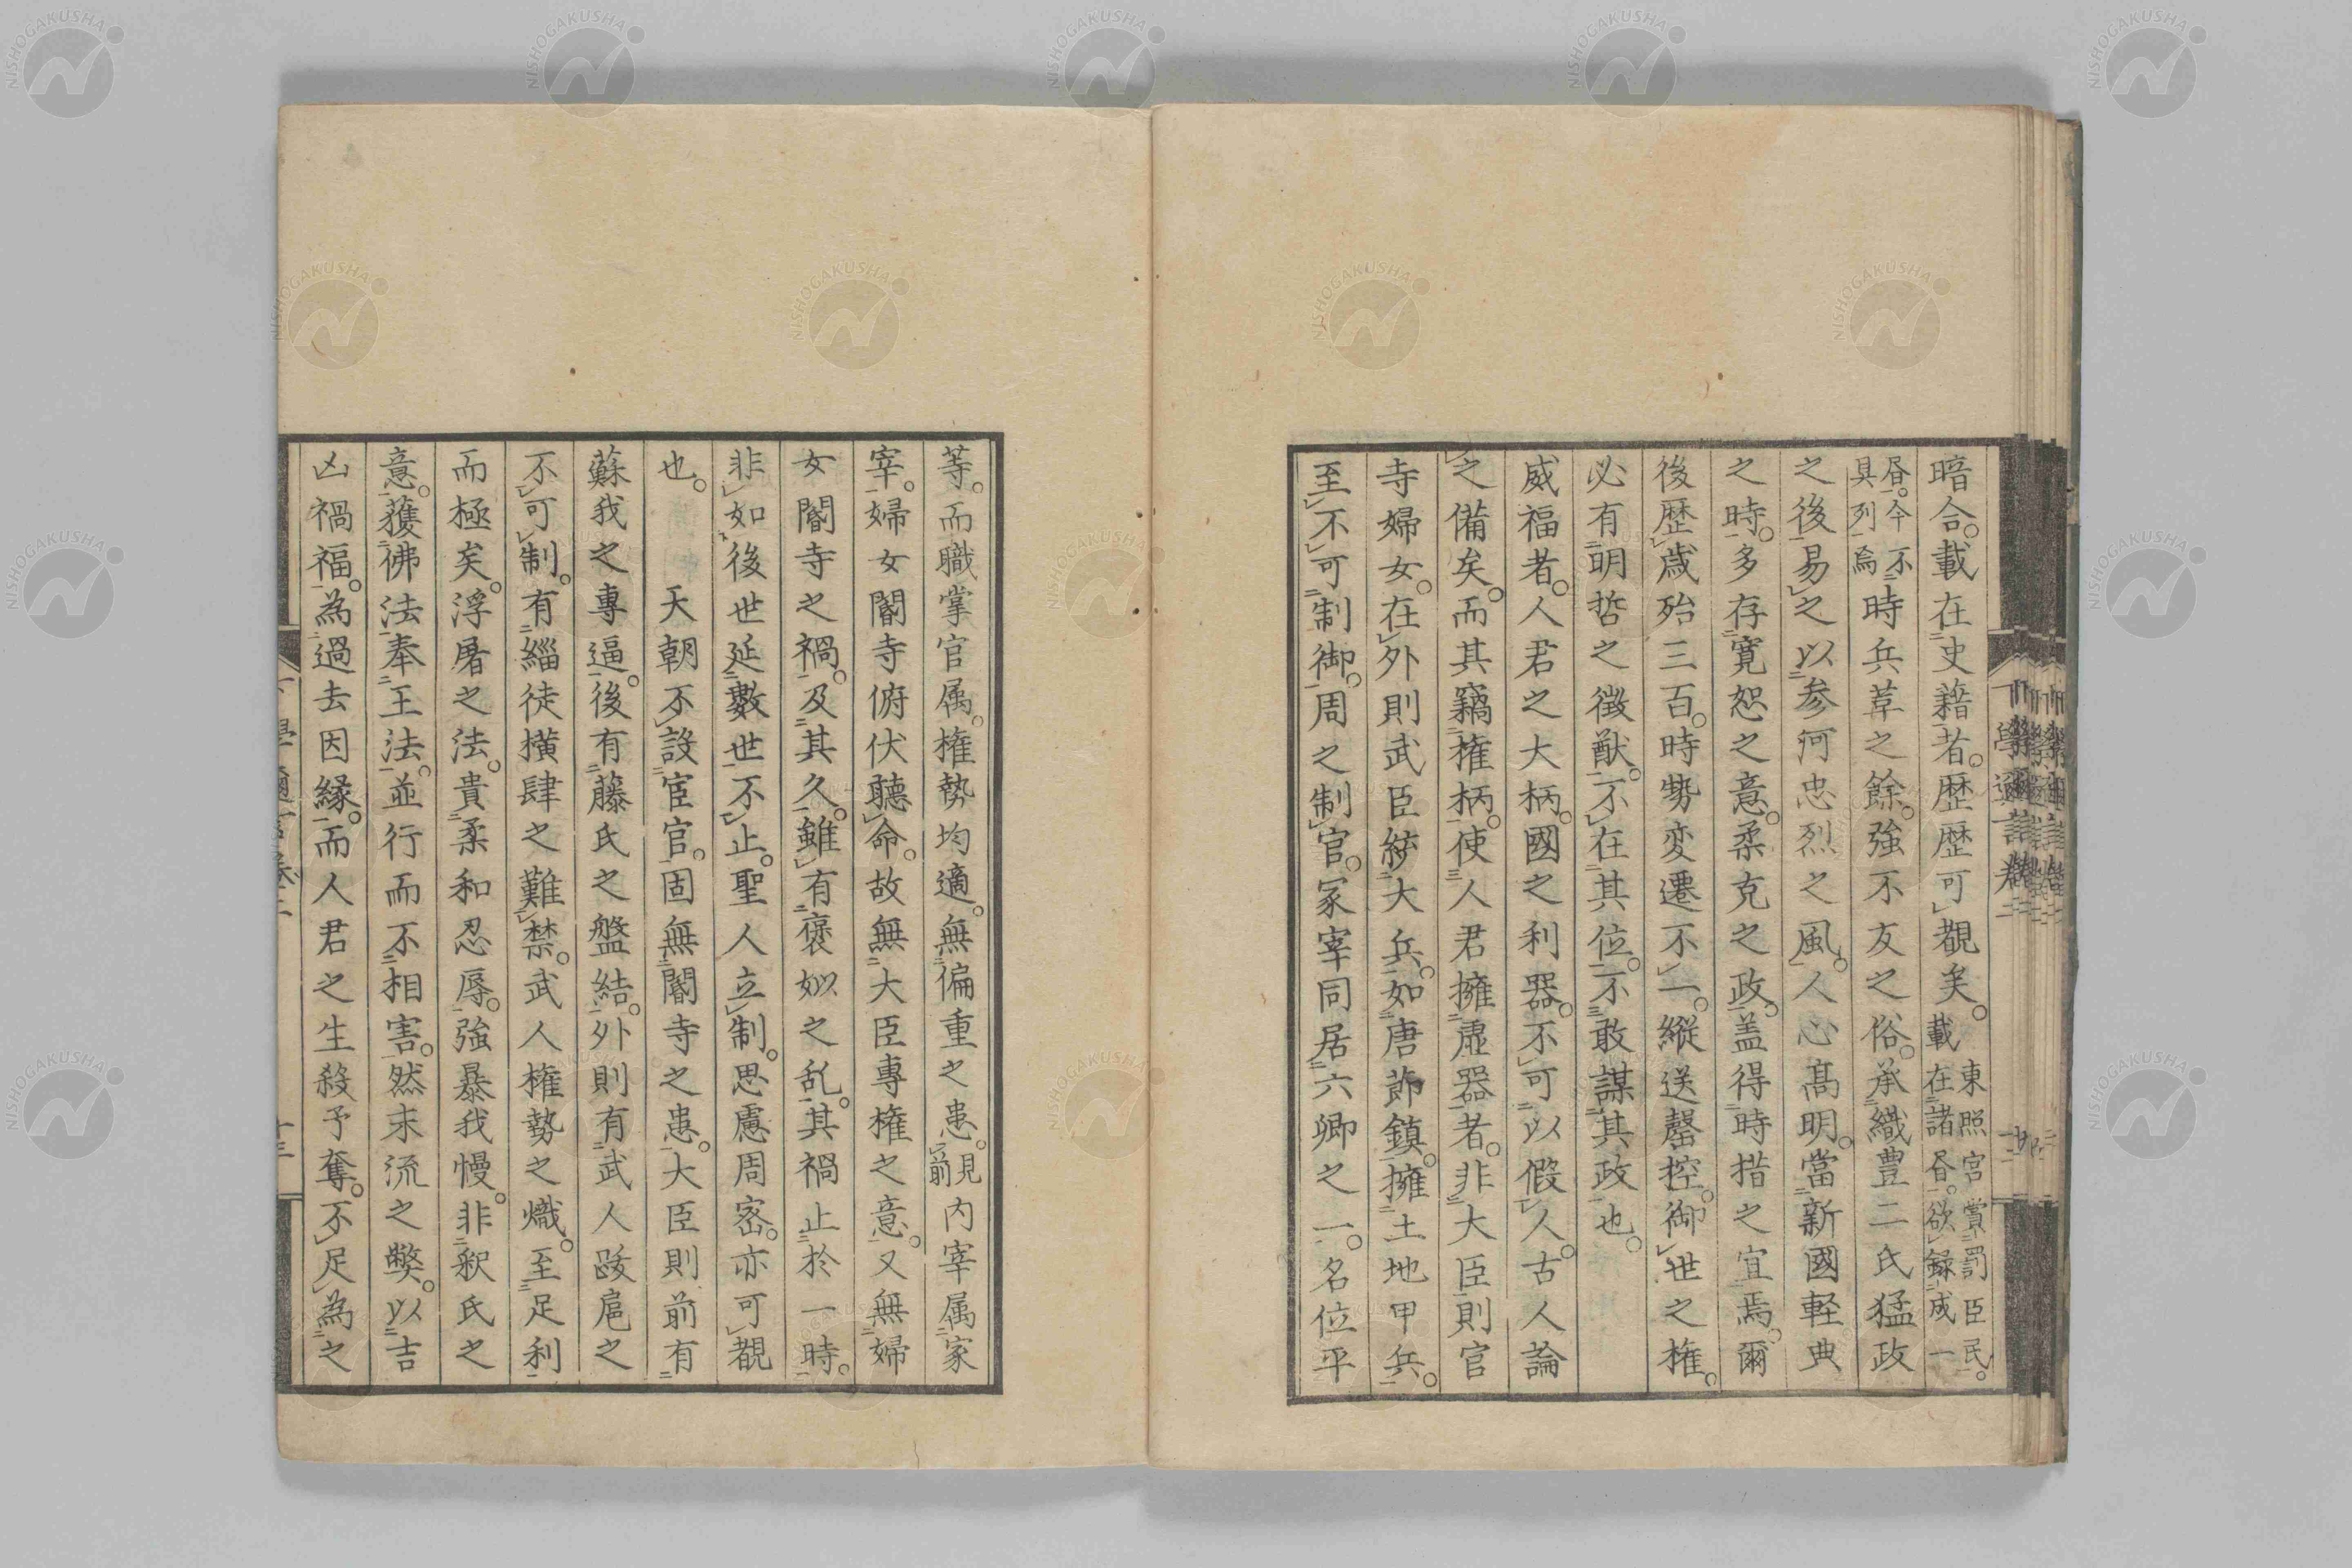 暗合。載在史藉者。歴歴可觀矣。載在諸昏。欲録成一
東照宮賞罰臣民。
昏。今不
具列焉時兵革之餘。強不友之俗。承織豊二氏猛政
之後。易之以参河忠烈之風。人心髙明。當新國軽典
之時。多存寛恕之意。柔克之政。盖得時措之宜焉。爾
後歴歳殆三百。時勢変遷不一。縦送罄控。御世之権。
必有明哲之徴猷。不在其位。不敢謀其政也。
威福者。人君之大柄。國之利器。不可以假人。古人論
之備矣。而其竊権柄。使人君擁虚器者。非大臣則官
寺婦女。在外則武臣統大兵。如唐節鎮。擁土地甲兵。
至不可制御。周之制官。冢宰同居六卿之一。名位平
等。而職掌官属。権勢均適。無偏重之患。見前内宰属家
宰。婦女閽寺俯伏聽命。故無大臣專権之意。又無婦
女閽寺之禍。及其久。雖有褒姒之乱。其禍止於一時。
非如後世延數世不止。聖人立制。思慮周宻。亦可觀
也。
天朝不設宦官。固無閽寺之患。大臣則前有
蘇我之專逼。後有藤氏之盤結。外則有武人跋扈之
不可制。有緇徒横肆之難禁。武人権勢之熾。至足利
而極矣。浮屠之法。貴柔和忍辱。強暴我慢。非釈氏之
意。獲佛法奉王法。並行而不相害。然末流之弊。以吉
凶禍福。為過去因縁。而人君之生殺予奪。不足為之
下學邇言巻二
十三
NISHOGAKUSHA